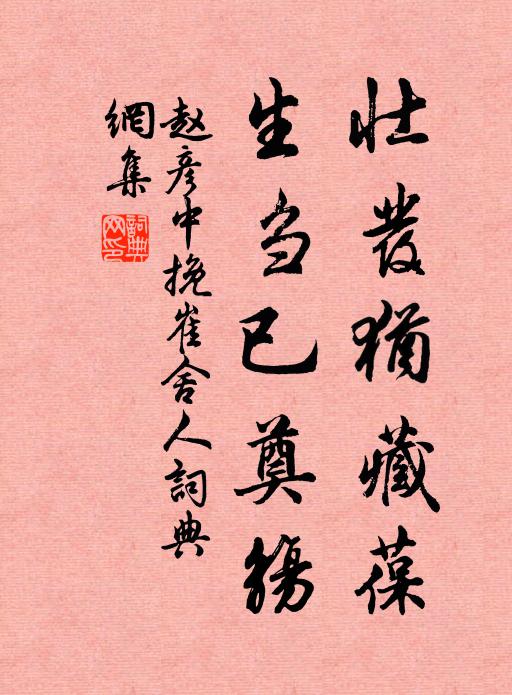 壮发犹藏葆
生刍已奠觞
赵彦中挽崔舍人詞典
網集
詞典网印